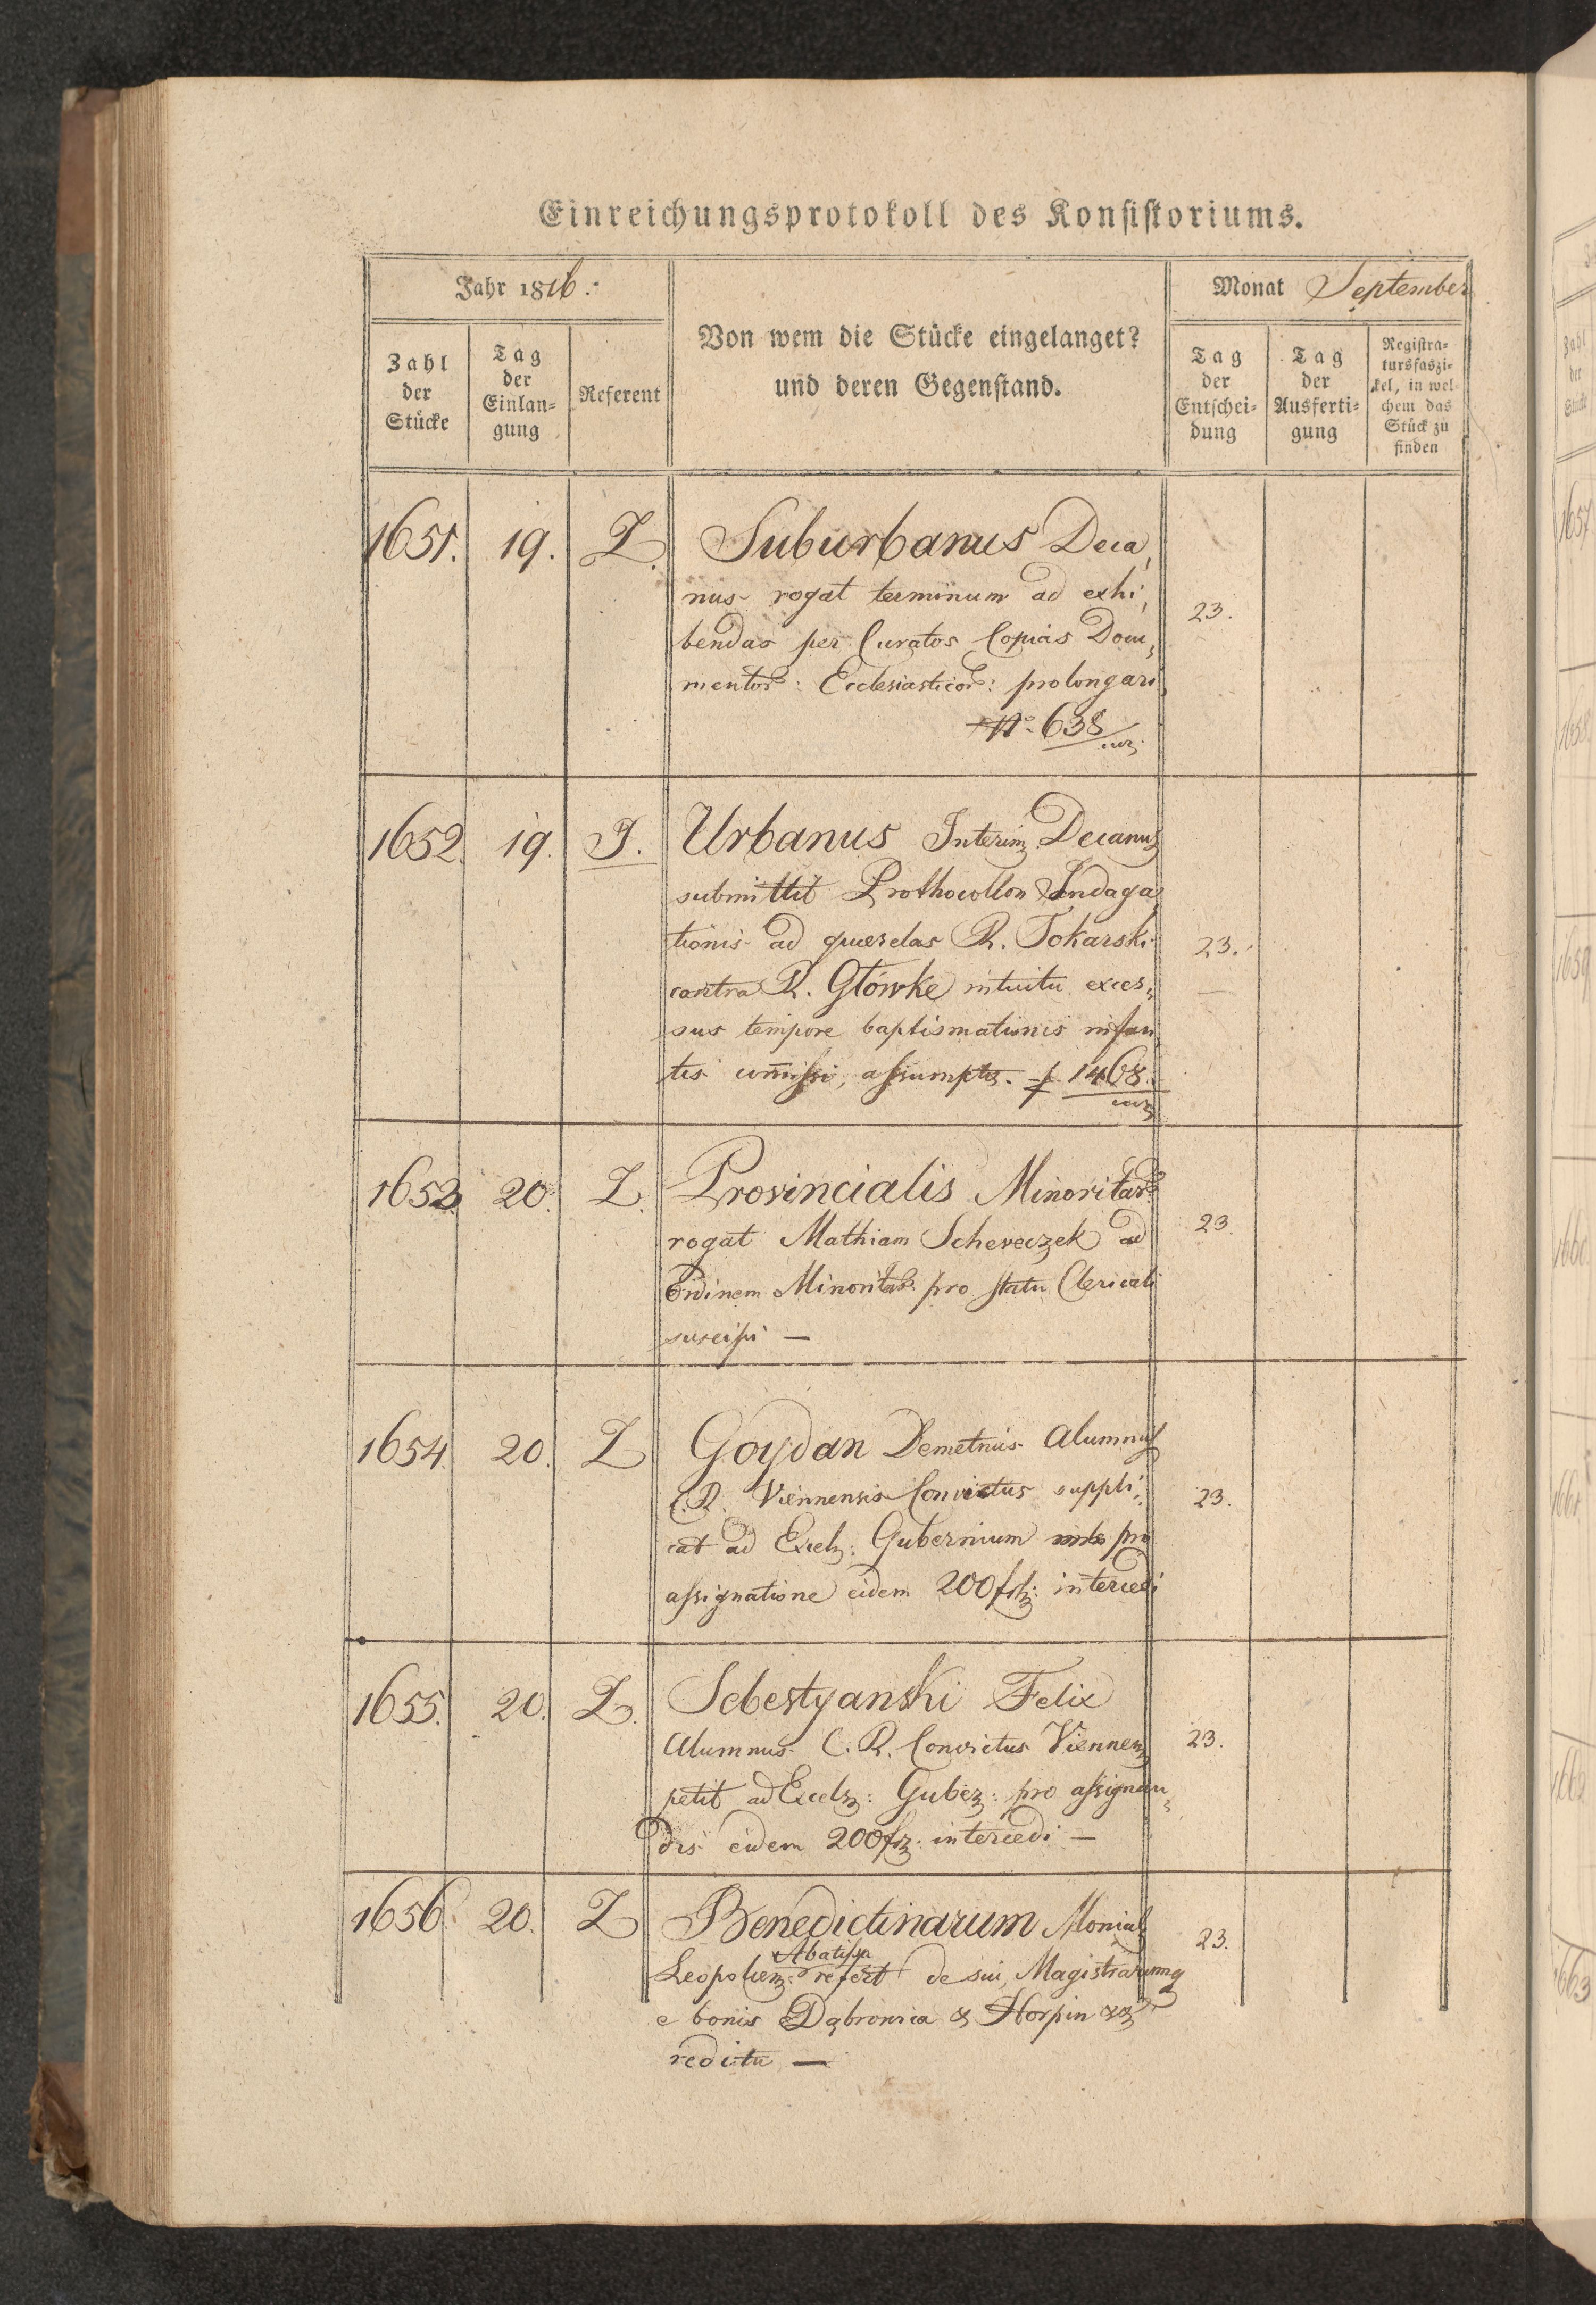 Einreichungsprotokoll des Konsistoriums.
Jahr 1816.
Monat September
Zahl der Stücke
Tag der Einlan=gung
Referent
Von wem die Stücke eingelanget?
und deren Gegenstand.
Tag der Entschei=dung
Tag der Ausferti=gung
Registra=tursfaszi=kel, in wel=chem das Stück zu finden
1651. 19. Z. Suburbanus Deca,
nus rogat terminum ad exhi,
bendas per Curatos Copias Docu,
mentor: Ecclesiasticor: prolongari
23.
N° 638
1652. 19. J. Urbanus Interim. Decanus
submittit Prothocollon Indaga,
tionis ad querelas R. Tokarski
23.
contra R. Główke intuitu exces,
sus tempore baptismationis infan,
tis com̄issi, assumptu. f. 1468.
1653. 20. Z. Provincialis Minoritar:
rogat MathiamSchereczek ad
23.
Ordinem Minoritar: pro statu Clericali
suscipi —
1654. 20. Z Goydan Demetrius Alumnus
C. R. Viennensis Convictus suppli,
23.
cat ad Excels: Gubernium pro
assignatione eidem 200 fr: intercedi
1655. 20. Z. Sebestyanski Felix
Alumnus C. R. Convictus Viennens
23.
petit ad Excels: Guber: pro assignan,
dis eidem 200 fr: intercedi —
1656. 20. Z Benedictinarum Monial
23.
Abatissa
Leopoliens: refert de sui, Magistrarumq
e bonis Dąbrowica & Horpin
reditu —